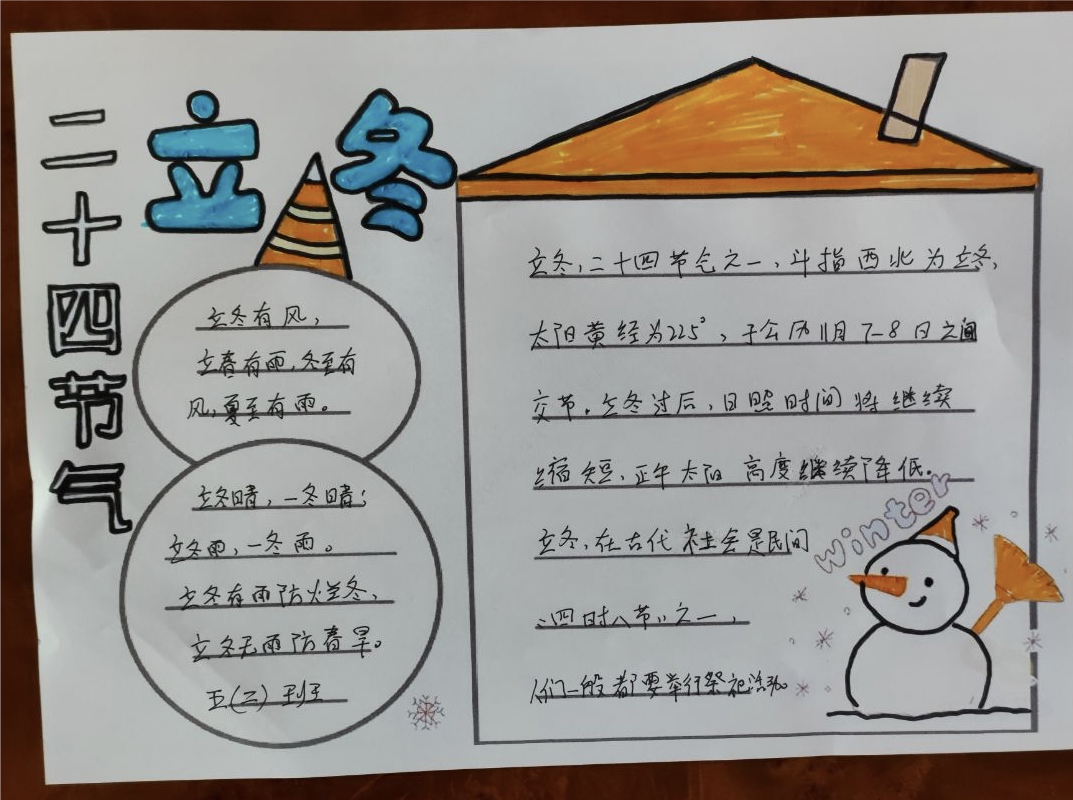 二十四节气
立冬
立冬有风，
立春有雨，冬至有
风，夏至有雨。
立冬晴，一冬晴；
立冬雨，一冬雨。
立冬有雨防烂冬，
立冬无雨防春旱。
五(二)班
立冬，二十四节气之一，斗指西北为立冬，
太阳黄经为225°，于公历11月7-8日之间
交节。立冬过后，日照时间将继续
缩短，正午太阳高度继续降低。
立冬，在古代社会是民间
“四时八节”之一，
人们一般都要举行祭祀活动。
winter